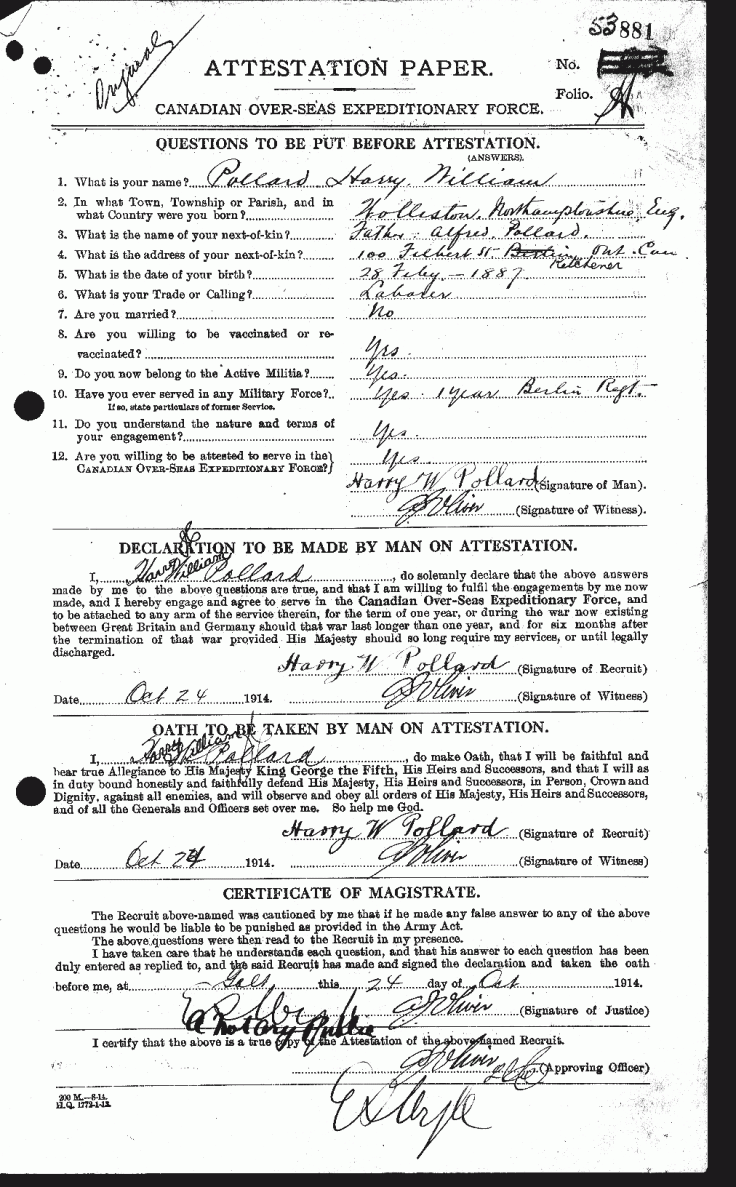 53881
Original
ATTESTATION PAPER.
No.
Folio.
CANADIAN OVER-SEAS EXPEDITIONARY FORCE.
QUESTIONS TO BE PUT BEFORE ATTESTATION.
(ANSWERS).
1. What is your name? Pollard Harry William
2. In what Town, Township or Parish, and in
what Country were you born? Wolliston, Northamptonshire, Eng.
3. What is the name of your next-of-kin? Father: Alfred Pollard.
4. What is the address of your next-of-kin? 100 Filbert St. Berlin Ont. Can
Kitchener
5. What is the date of your birth? 28 Feby - 1887
6. What is your Trade or Calling? Laborer
7. Are you married? No
8. Are you willing to be vaccinated or re-
vaccinated? Yes.
9. Do you now belong to the Active Militia? Yes.
10. Have you ever served in any Military Force? Yes. 1 year Berlin Regt.
If so, state particulars of former Service.
11. Do you understand the nature and terms of
your engagement? Yes.
12. Are you willing to be attested to serve in the
CANADIAN OVER-SEAS EXPEDITIONARY FORCE? Yes.
Harry W Pollard (Signature of Man).
Oliver (Signature of Witness).
DECLARATION TO BE MADE BY MAN ON ATTESTATION.
I, Harry William Pollard, do solemnly declare that the above answers
made by me to the above questions are true, and that I am willing to fulfil the engagements by me now
made, and I hereby engage and agree to serve in the Canadian Over-Seas Expeditionary Force, and
to be attached to any arm of the service therein, for the term of one year, or during the war now existing
between Great Britain and Germany should that war last longer than one year, and for six months after
the termination of that war provided His Majesty should so long require my services, or until legally
discharged.
Harry W Pollard (Signature of Recruit)
Date Oct 24 1914. Oliver (Signature of Witness)
OATH TO BE TAKEN BY MAN ON ATTESTATION.
I, Harry William Pollard, do make Oath, that I will be faithful and
bear true Allegiance to His Majesty King George the Fifth, His Heirs and Successors, and that I will as
in duty bound honestly and faithfully defend His Majesty, His Heirs and Successors, in Person, Crown and
Dignity, against all enemies, and will observe and obey all orders of His Majesty, His Heirs and Successors,
and of all the Generals and Officers set over me. So help me God.
Harry W Pollard (Signature of Recruit)
Date Oct 24 1914. Oliver (Signature of Witness)
CERTIFICATE OF MAGISTRATE.
The Recruit above-named was cautioned by me that if he made any false answer to any of the above
questions he would be liable to be punished as provided in the Army Act.
The above questions were then read to the Recruit in my presence.
I have taken care that he understands each question, and that his answer to each question has been
duly entered as replied to, and the said Recruit has made and signed the declaration and taken the oath
before me, at Galt this 24 day of Oct 1914.
Oliver (Signature of Justice)
A Notary Public
I certify that the above is a true copy of the Attestation of the above-named Recruit.
Oliver (Approving Officer)
200 M.—8-14.
H.Q. 1772-1-13.